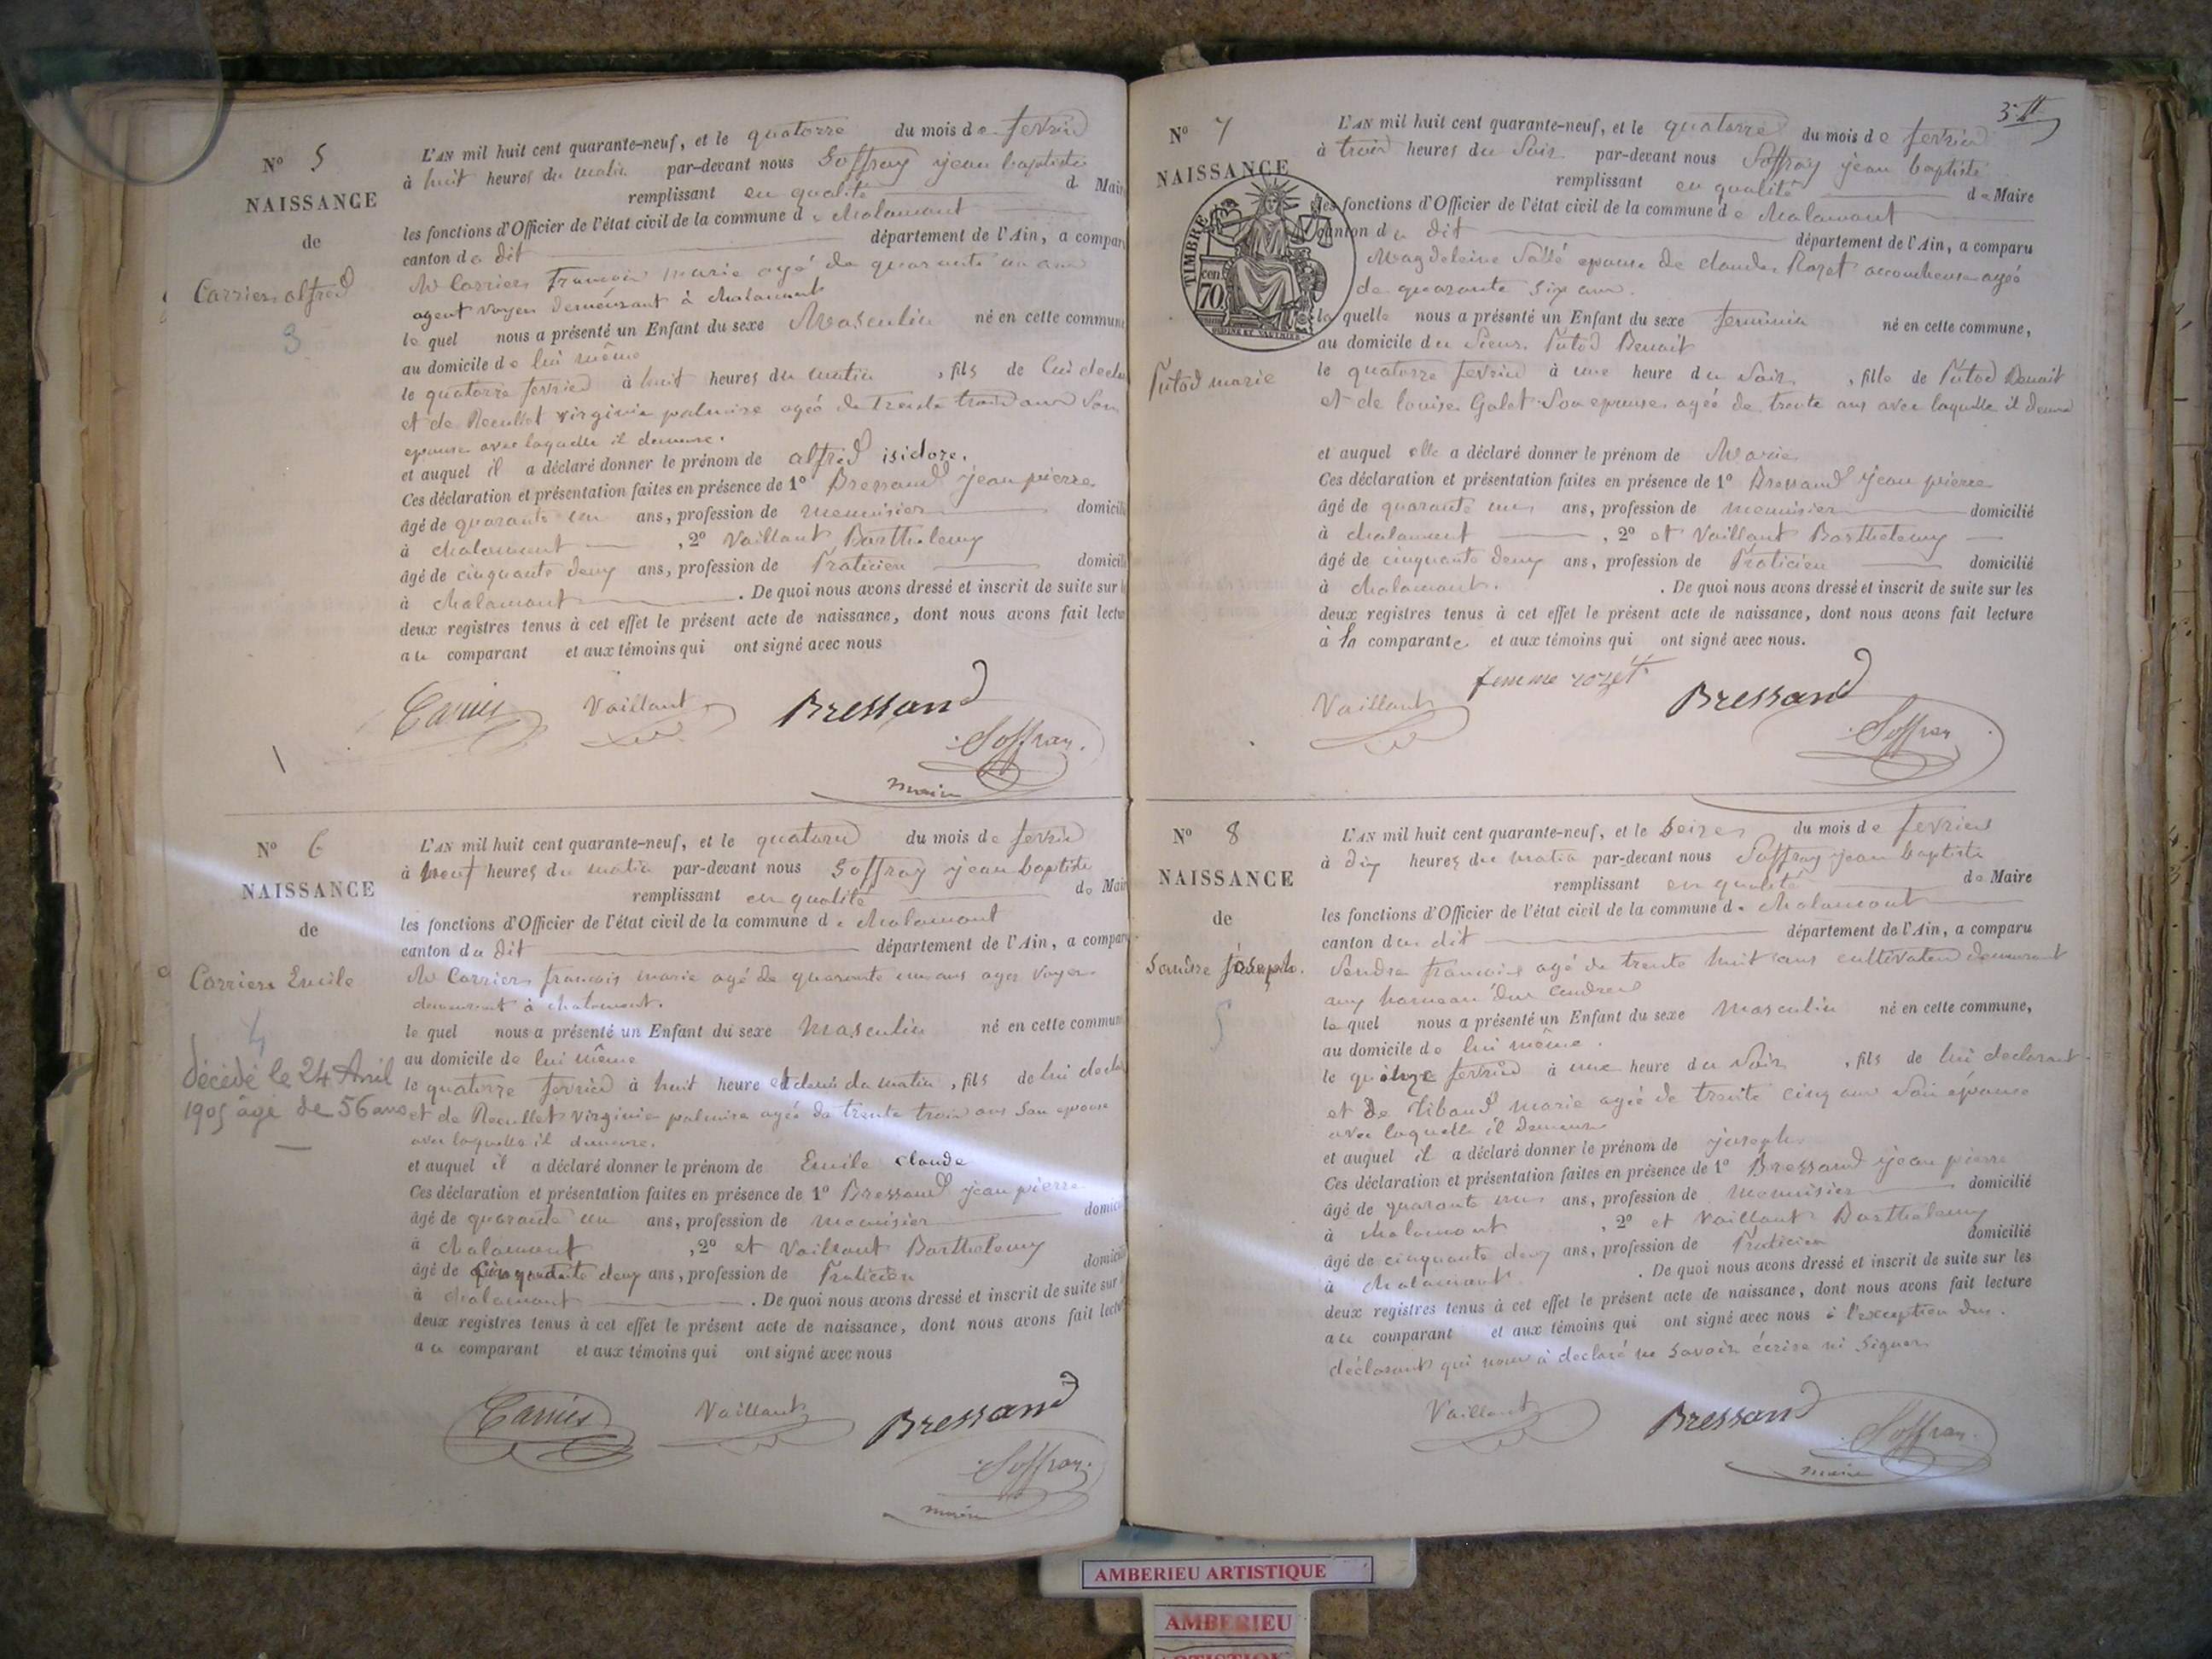 N° 5
NAISSANCE
de
Carrier alfred
3
L'AN mil huit cent quarante-neuf, et le quatorze du mois de fevrier
à huit heures du matin par-devant nous Soffray jean baptiste
remplissant en qualité de Maire
les fonctions d'Officier de l'état civil de la commune de chalamont
canton du dit département de l'Ain, a comparu
Mr Carrier francois marie agé de quarante un ans
agent voyer demeurant à chalamont
le quel nous a présenté un Enfant du sexe Masculin né en cette commune
au domicile de lui même
le quatorze fevrier à huit heures du matin, fils de lui
et de Recullet virginie palmire agée de trente trois ans son
epouse avec laquelle il demeure.
et auquel il a déclaré donner le prénom de alfred isidore.
Ces déclaration et présentation faites en présence de 1° Bressand jean pierre
âgé de quarante un ans, profession de menuisier domicilié
à chalamont, 2° Vaillant Barthelemy
âgé de cinquante deux ans, profession de Praticien domicilié
à chalamont. De quoi nous avons dressé et inscrit de suite sur les
deux registres tenus à cet effet le présent acte de naissance, dont nous avons fait lecture
au comparant et aux témoins qui ont signé avec nous
Carrier Vaillant Bressand
Soffray
maire
N° 6
NAISSANCE
de
Carrier Emile
4
décédé le 24 Avril
1905 âgé de 56 ans
L'AN mil huit cent quarante-neuf, et le quatorze du mois de fevrier
à neuf heures du matin par-devant nous Soffray jean baptiste
remplissant en qualité de Maire
les fonctions d'Officier de l'état civil de la commune de chalamont
canton du dit département de l'Ain, a comparu
Mr Carrier francois marie agé de quarante un ans voyer
demeurant à chalamont.
le quel nous a présenté un Enfant du sexe Masculin né en cette commune
au domicile de lui même
le quatorze fevrier à huit heure et demi du matin, fils de lui
et de Recullet virginie palmire agée de trente trois ans son epouse
avec laquelle il demeure.
et auquel il a déclaré donner le prénom de Emile claude
Ces déclaration et présentation faites en présence de 1° Bressand jean pierre
âgé de quarante un ans, profession de menuisier domicilié
à chalamont, 2° et Vaillant Barthelemy
âgé de cinquante deux ans, profession de Praticien domicilié
à chalamont. De quoi nous avons dressé et inscrit de suite sur les
deux registres tenus à cet effet le présent acte de naissance, dont nous avons fait lecture
au comparant et aux témoins qui ont signé avec nous
Carrier Vaillant Bressand
Soffray
maire
3
N° 7
NAISSANCE
TIMBRE
70
cen
Putod marie
L'AN mil huit cent quarante-neuf, et le quatorze du mois de fevrier
à trois heures du Soir par-devant nous Soffray jean baptiste
remplissant en qualité de Maire
les fonctions d'Officier de l'état civil de la commune de chalamont
canton du dit département de l'Ain, a comparu
Magdeleine Sallé epouse de claude Rozet accoucheuse agée
de quarante six ans.
la quelle nous a présenté un Enfant du sexe feminin né en cette commune,
au domicile du Sieur Putod Benoit
le quatorze fevrier à une heure du soir, fille de Putod Benoit
et de louise Galet son epouse agée de trente ans avec laquelle il
et auquel elle a déclaré donner le prénom de Marie
Ces déclaration et présentation faites en présence de 1° Bressand jean pierre
âgé de quarante un ans, profession de menuisier domicilié
à chalamont, 2° et Vaillant Barthelemy
âgé de cinquante deux ans, profession de Praticien domicilié
à chalamont. De quoi nous avons dressé et inscrit de suite sur les
deux registres tenus à cet effet le présent acte de naissance, dont nous avons fait lecture
à la comparante et aux témoins qui ont signé avec nous.
Vaillant femme rozet Bressand
Soffray
N° 8
NAISSANCE
de
Sandre joseph.
5
L'AN mil huit cent quarante-neuf, et le Seize du mois de fevrier
à dix heures du matin par-devant nous Soffray jean baptiste
remplissant en qualité de Maire
les fonctions d'Officier de l'état civil de la commune de chalamont
canton du dit département de l'Ain, a comparu
Sandre francois agé de trente huit ans cultivateur demeurant
aux hameau
le quel nous a présenté un Enfant du sexe Masculin né en cette commune,
au domicile de lui même.
le fevrier à une heure du soir, fils de lui declarant
et de Tibaud marie agée de trente cinq ans son épouse
avec laquelle il demeure
et auquel il a déclaré donner le prénom de joseph
Ces déclaration et présentation faites en présence de 1° Bressand jean pierre
âgé de quarante un ans, profession de menuisier domicilié
à chalamont, 2° et Vaillant Barthelemy
âgé de cinquante deux ans, profession de Praticien domicilié
à chalamont. De quoi nous avons dressé et inscrit de suite sur les
deux registres tenus à cet effet le présent acte de naissance, dont nous avons fait lecture
au comparant et aux témoins qui ont signé avec nous à l'exception du
déclarant qui nous à declaré ne savoir écrire ni signer
Vaillant Bressand Soffray
maire
AMBERIEU ARTISTIQUE
AMBERIEU
ARTISTIQUE